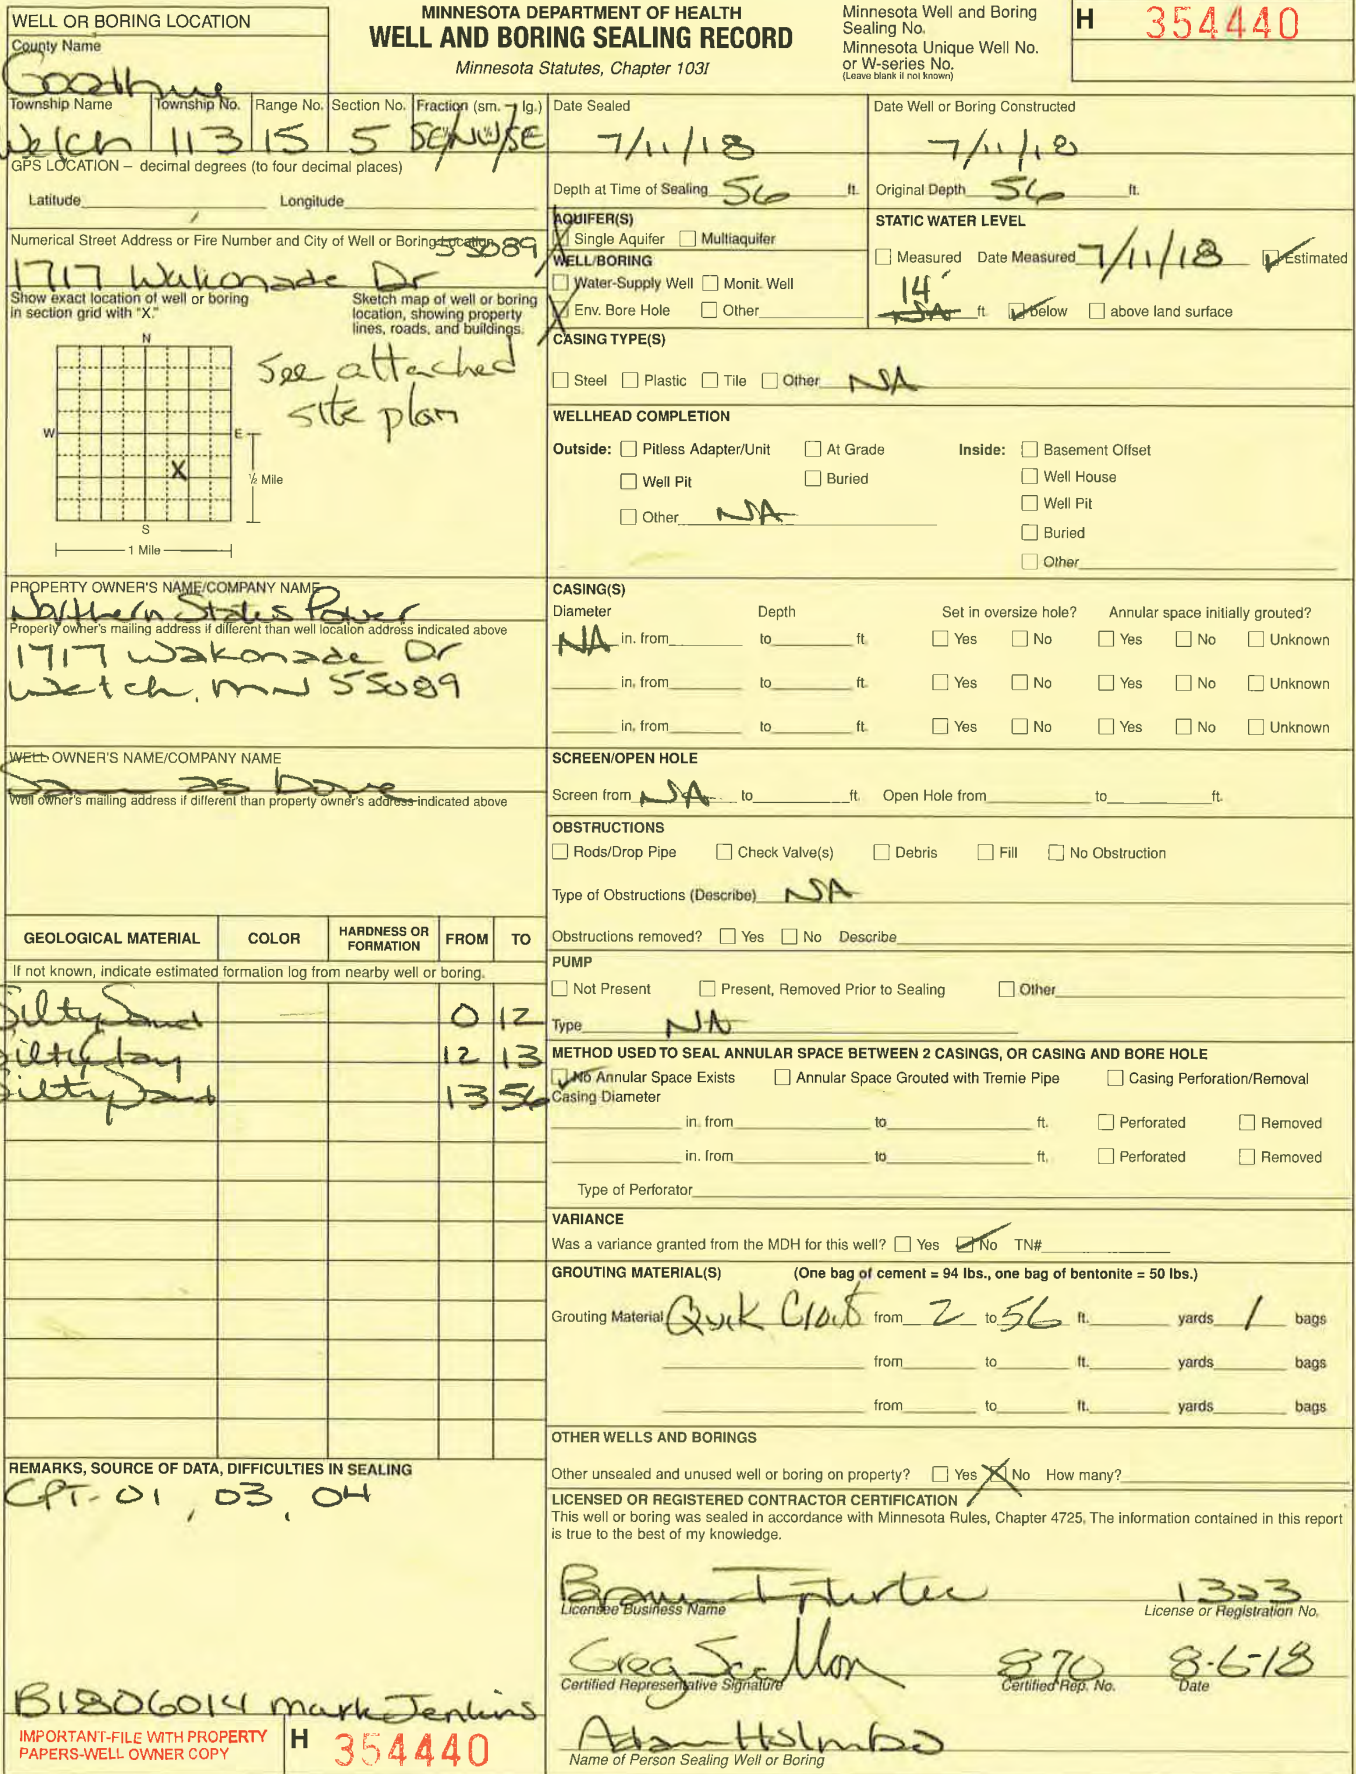 WELL OR BORING LOCATION
County Name
Goodhue
MINNESOTA DEPARTMENT OF HEALTH
WELL AND BORING SEALING RECORD
Minnesota Statutes, Chapter 103I
Minnesota Well and Boring
Sealing No.
Minnesota Unique Well No.
or W-series No.
(Leave blank if not known)
H 354440
Township Name Township No. Range No. Section No. Fraction (sm. → lg.)
Welch 113 15 5 SE/NW/SE
GPS LOCATION – decimal degrees (to four decimal places)
Latitude Longitude
Numerical Street Address or Fire Number and City of Well or Boring Location 55089
1717 Wakonade Dr
Show exact location of well or boring
in section grid with "X."
Sketch map of well or boring
location, showing property
lines, roads, and buildings.
See attached
site plan
N
W E
X
½ Mile
S
1 Mile
PROPERTY OWNER'S NAME/COMPANY NAME
Northern States Power
Property owner's mailing address if different than well location address indicated above
1717 Wakonade Dr
Welch, MN 55089
WELL OWNER'S NAME/COMPANY NAME
Sam as bove
Well owner's mailing address if different than property owner's address indicated above
GEOLOGICAL MATERIAL COLOR HARDNESS OR FORMATION FROM TO
If not known, indicate estimated formation log from nearby well or boring.
Silty Sand 0 12
Silty Clay 12 13
Silty Sand 13 56
REMARKS, SOURCE OF DATA, DIFFICULTIES IN SEALING
CPT-01, 03, 04
B1806014 Mark Jenkins
IMPORTANT-FILE WITH PROPERTY
PAPERS-WELL OWNER COPY
H 354440
Date Sealed
7/11/18
Date Well or Boring Constructed
7/11/18
Depth at Time of Sealing 56 ft.
Original Depth 56 ft.
AQUIFER(S)
Single Aquifer Multiaquifer
WELL/BORING
Water-Supply Well Monit. Well
Env. Bore Hole Other
STATIC WATER LEVEL
Measured Date Measured 7/11/18 Estimated
14'
NA ft. below above land surface
CASING TYPE(S)
Steel Plastic Tile Other NA
WELLHEAD COMPLETION
Outside: Pitless Adapter/Unit At Grade Inside: Basement Offset
Well Pit Buried Well House
Well Pit
Other NA
Buried
Other
CASING(S)
Diameter Depth Set in oversize hole? Annular space initially grouted?
NA in. from to ft. Yes No Yes No Unknown
in. from to ft. Yes No Yes No Unknown
in. from to ft. Yes No Yes No Unknown
SCREEN/OPEN HOLE
Screen from NA to ft. Open Hole from to ft.
OBSTRUCTIONS
Rods/Drop Pipe Check Valve(s) Debris Fill No Obstruction
Type of Obstructions (Describe) NA
Obstructions removed? Yes No Describe
PUMP
Not Present Present, Removed Prior to Sealing Other
Type NA
METHOD USED TO SEAL ANNULAR SPACE BETWEEN 2 CASINGS, OR CASING AND BORE HOLE
No Annular Space Exists Annular Space Grouted with Tremie Pipe Casing Perforation/Removal
Casing Diameter
in. from to ft. Perforated Removed
in. from to ft. Perforated Removed
Type of Perforator
VARIANCE
Was a variance granted from the MDH for this well? Yes No TN#
GROUTING MATERIAL(S) (One bag of cement = 94 lbs., one bag of bentonite = 50 lbs.)
Grouting Material Quik Grout from 2 to 56 ft. yards 1 bags
from to ft. yards bags
from to ft. yards bags
OTHER WELLS AND BORINGS
Other unsealed and unused well or boring on property? Yes No How many?
LICENSED OR REGISTERED CONTRACTOR CERTIFICATION
This well or boring was sealed in accordance with Minnesota Rules, Chapter 4725. The information contained in this report
is true to the best of my knowledge.
Braun Intertec 1323
Licensee Business Name License or Registration No.
Greg Scallon 870 8-6-18
Certified Representative Signature Certified Rep. No. Date
Adam Holmbo
Name of Person Sealing Well or Boring